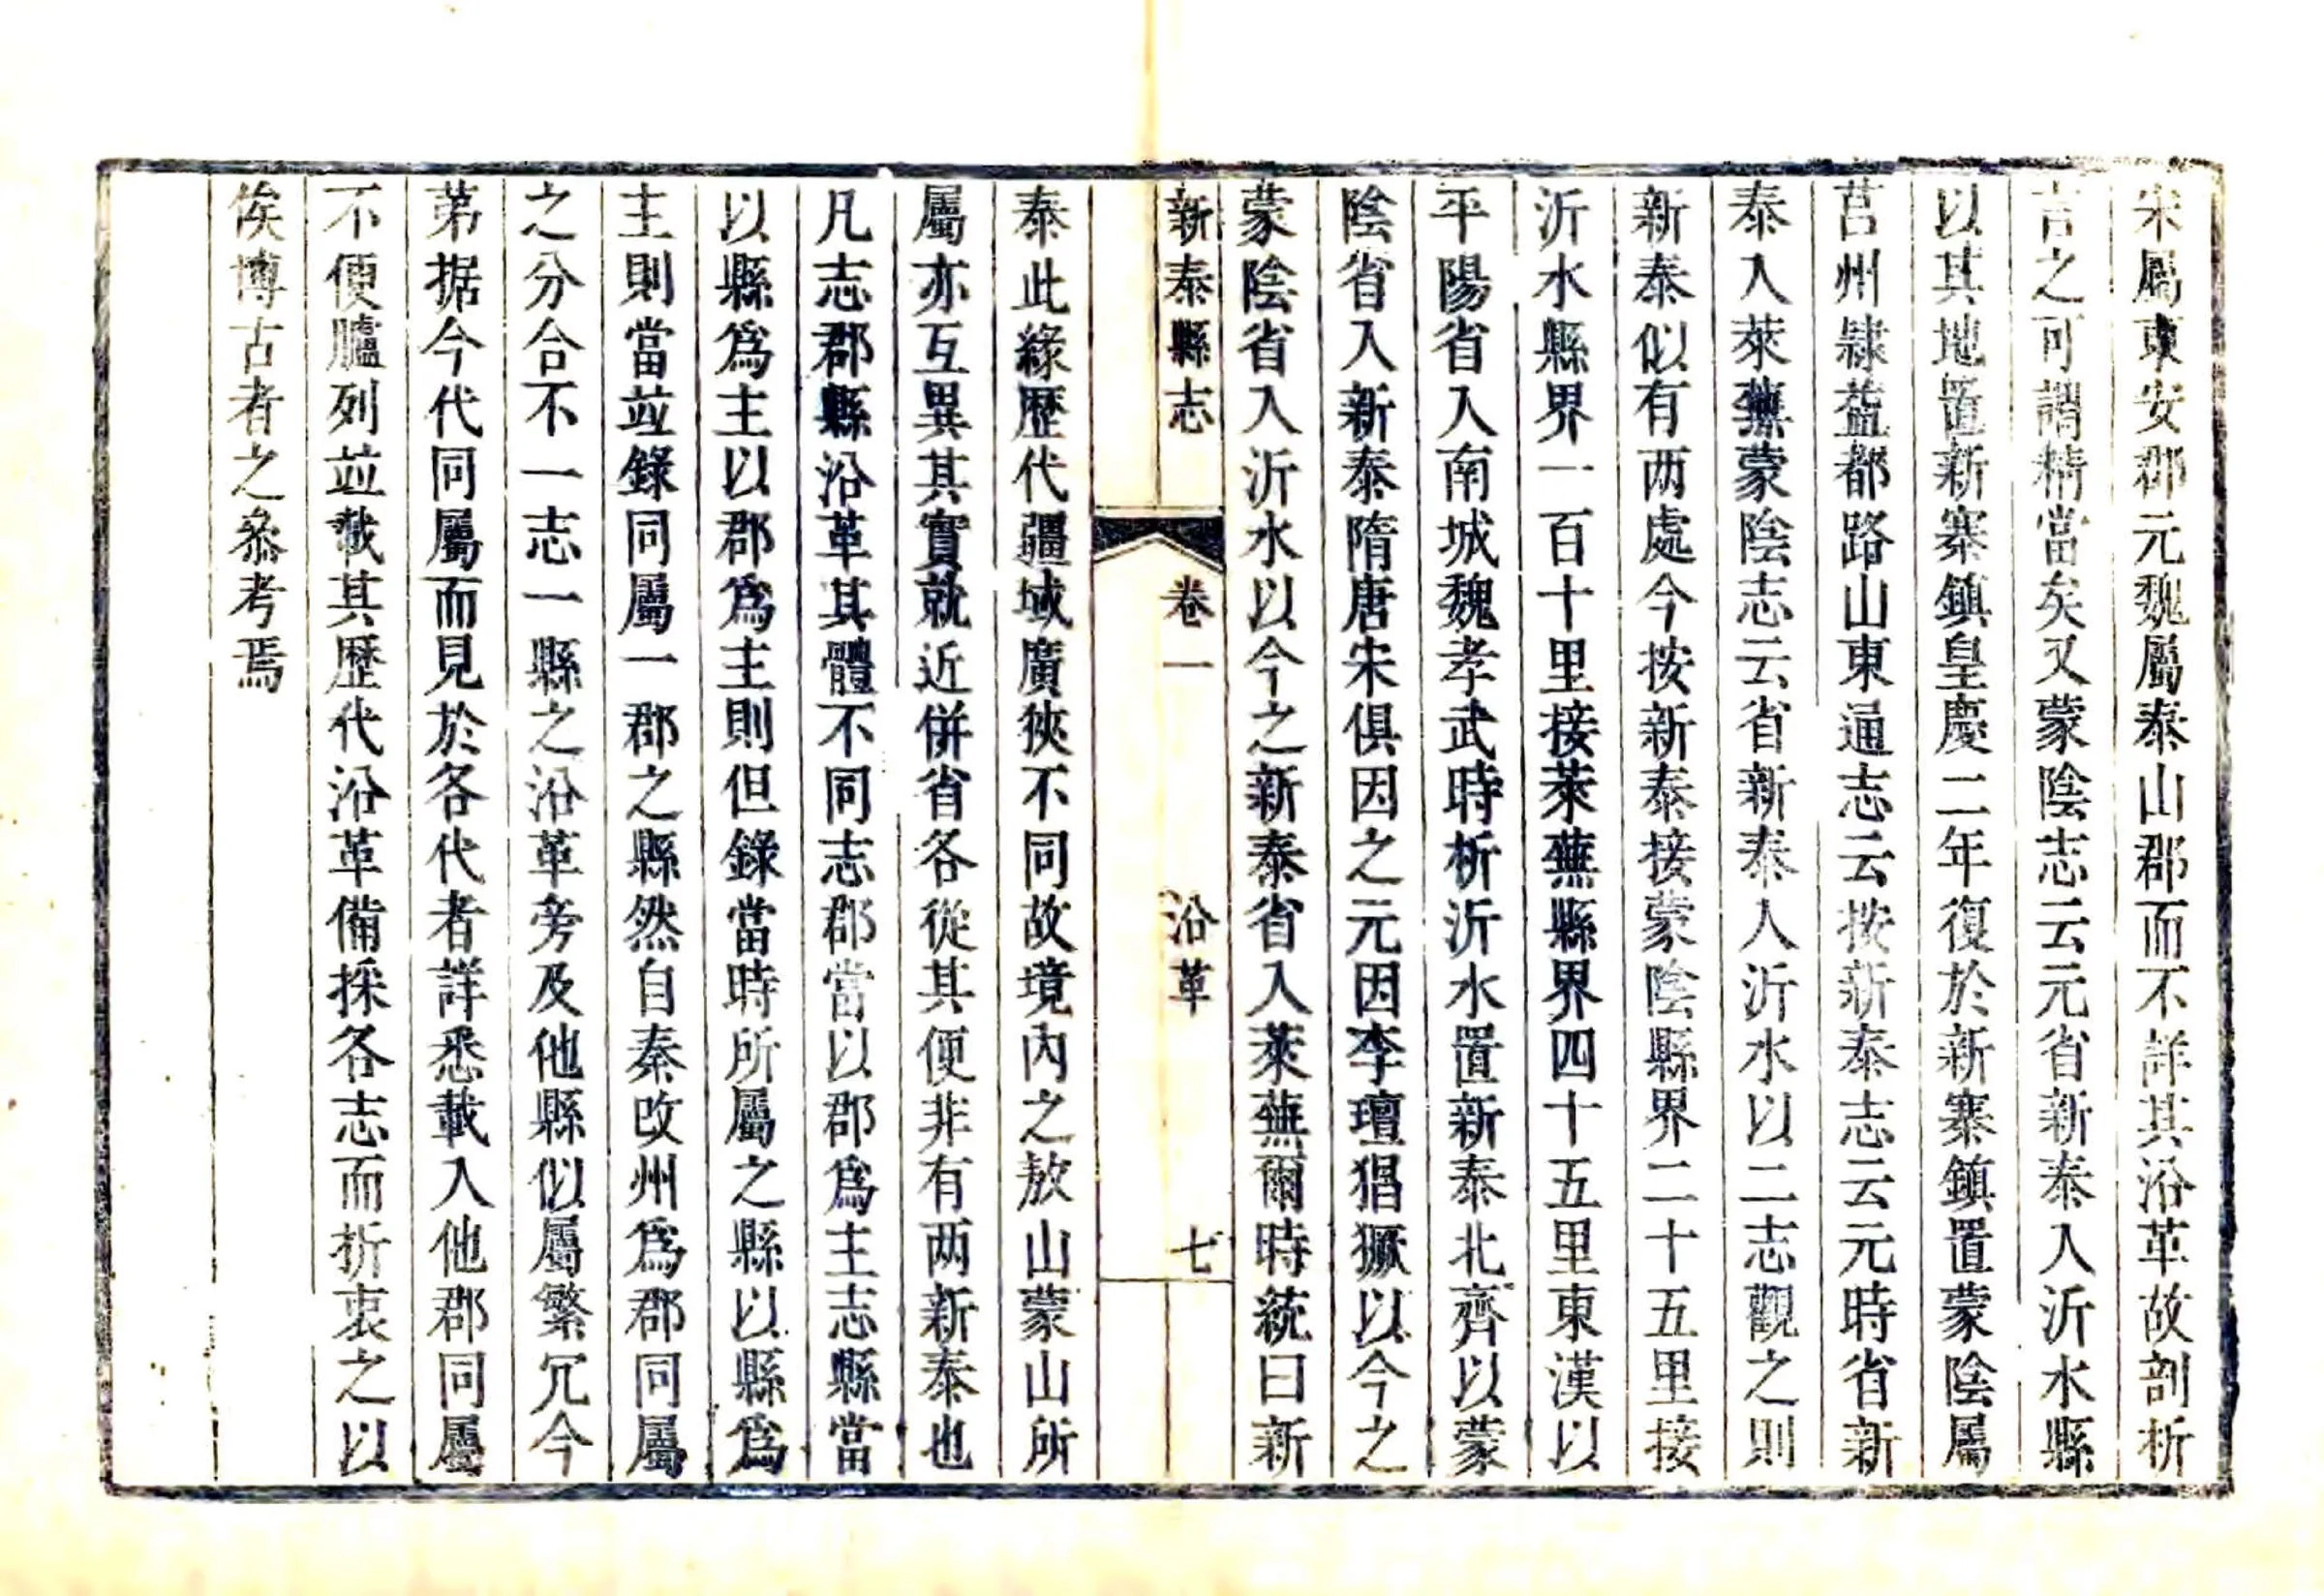 宋屬東安郡元魏屬泰山郡而不詳其沿革故剖析
言之可謂精當矣又蒙陰志云元省新泰入沂水縣
以其地置新寨鎮皇慶二年復於新寨鎮置蒙陰屬
莒州隸益都路山東通志云按新泰志云元時省新
泰入萊蕪蒙陰志云省新泰入沂水以二志觀之則
新泰似有两處今按新泰接蒙陰縣界二十五里接
沂水縣界一百十里接萊蕪縣界四十五里東漢以
平陽省入南城魏孝武時析沂水置新泰北齊以蒙
陰省入新泰隋唐宋俱因之元因李璮猖獗以今之
蒙陰省入沂水以今之新泰省入萊蕪爾時統曰新
新泰縣志 卷一 沿革 七
泰此緣歴代疆域廣狹不同故境內之敖山蒙山所
屬亦互異其實就近併省各從其便非有两新泰也
凡志郡縣沿革其體不同志郡當以郡爲主志縣當
以縣爲主以郡爲主則但錄當時所屬之縣以縣爲
主則當竝錄同屬一郡之縣然自秦改州爲郡同屬
之分合不一志一縣之沿革旁及他縣似屬繁冗今
苐据今代同屬而見於各代者詳悉載入他郡同屬
不便臚列竝載其歴代沿革備採各志而折衷之以
俟博古者之叅考焉